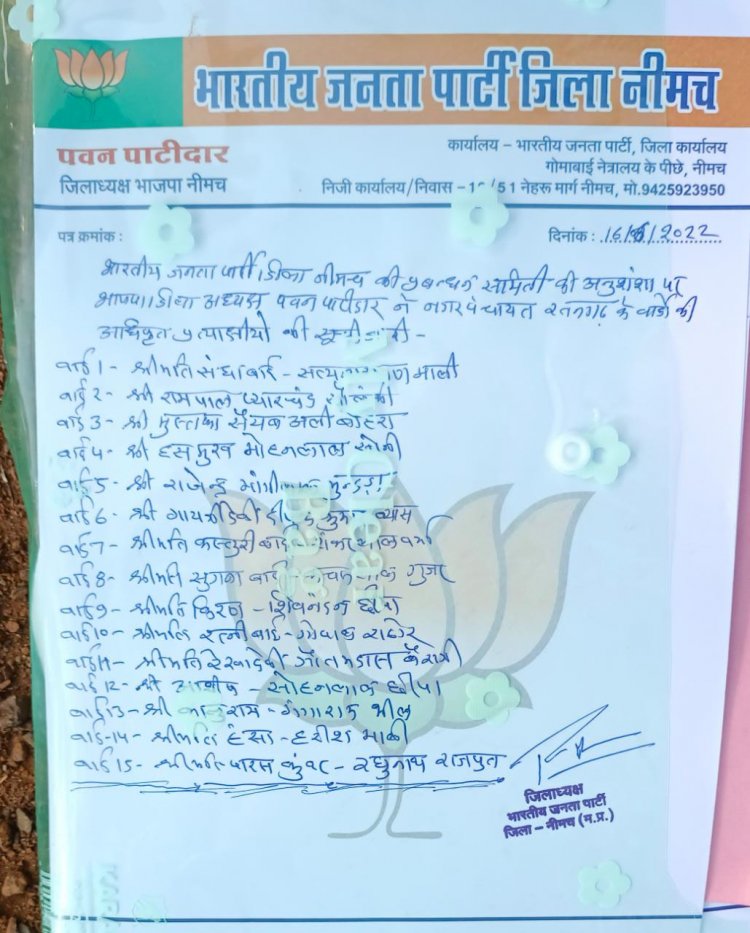 भारतीय जनता पार्टी जिला नीमच
पवन पाटीदार
जिलाध्यक्ष भाजपा नीमच
कार्यालय – भारतीय जनता पार्टी, जिला कार्यालय
गोमाबाई नेत्रालय के पीछे, नीमच
निजी कार्यालय/निवास – /51 नेहरू मार्ग नीमच, मो.9425923950
पत्र क्रमांक :
दिनांक : 16/6/2022
भारतीय जनता पार्टी जिला नीमच की प्रबन्धन समिती की अनुशंशा पर
भाजपा जिला अध्यक्ष पवन पाटीदार ने नगर पंचायत रतनगढ़ के वार्डो की
अधिकृत प्रत्याशीयो की सूची जारी –
वार्ड 1 - श्रीमति संध्याबाई - माली
वार्ड 2 - श्री रामपाल प्यारचंद
वार्ड 3 - श्री सैयब अली बोहरा
वार्ड 4 - श्री हसमुख मोहनलाल सोनी
वार्ड 5 - श्री राजेन्द्र मुन्दड़ा
वार्ड 6 - श्री गायत्रीदेवी व्यास
वार्ड 7 - श्रीमति कस्तुरी बाई
वार्ड 8 - श्रीमती सुगना बाई गुर्जर
वार्ड 9 - श्रीमति किरण - शिवनंदन छीपा
वार्ड 10 - श्रीमति रत्नी बाई - गोपाल राठोर
वार्ड 11 - श्रीमति रेखादेवी गोतमदास बैरागी
वार्ड 12 - श्री - सोहनलाल छीपा
वार्ड 13 - श्री कालुराम - भील
वार्ड - 14 - श्रीमति हंसा - हरीश माली
वार्ड 15 - श्रीमति पारस कुंवर - रघुनाथ राजपुत
जिलाध्यक्ष
भारतीय जनता पार्टी
जिला – नीमच (म.प्र.)